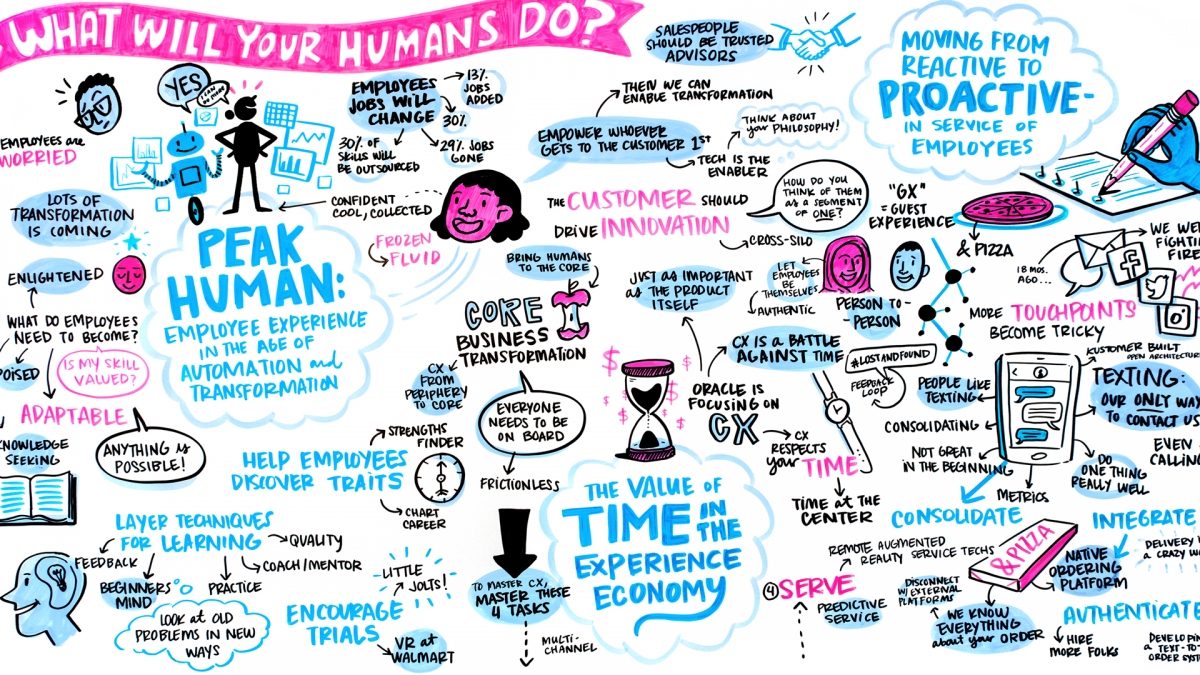 WHAT WILL YOUR HUMANS DO?
EMPLOYEES are
WORRIED
YES
I CAN
DO MORE
EMPLOYEES
JOBS WILL
CHANGE
13%
JOBS
ADDED
30%
30% OF
SKILLS WILL
BE OUTSOURCED
29% JOBS
GONE
LOTS OF
TRANSFORMATION
IS COMING
CONFIDENT
COOL, COLLECTED
FROZEN
FLUID
PEAK
HUMAN:
EMPLOYEE EXPERIENCE
IN THE AGE OF
AUTOMATION and
TRANSFORMATION
ENLIGHTENED
WHAT DO EMPLOYEES
NEED TO BECOME?
IS MY SKILL
VALUED?
POISED
ADAPTABLE
KNOWLEDGE
SEEKING
ANYTHING is
POSSIBLE!
HELP EMPLOYEES
DISCOVER TRAITS
STRENGTHS
FINDER
CHART
CAREER
LAYER TECHNIQUES
FOR LEARNING
QUALITY
COACH/MENTOR
FEEDBACK
BEGINNERS
MIND
PRACTICE
LOOK AT OLD
PROBLEMS IN NEW
WAYS
ENCOURAGE
TRIALS
LITTLE
JOLTS!
VR at
WALMART
SALESPEOPLE
SHOULD BE TRUSTED
ADVISORS
THEN WE CAN
ENABLE TRANSFORMATION
EMPOWER WHOEVER
GETS TO THE CUSTOMER 1ST
THINK ABOUT
your PHILOSOPHY!
TECH IS THE
ENABLER
THE CUSTOMER SHOULD
DRIVE INNOVATION
HOW DO YOU
THINK OF THEM
AS A SEGMENT
OF ONE?
CROSS-SILO
BRING HUMANS
TO THE CORE
CORE
BUSINESS
TRANSFORMATION
CX
FROM
PERIPHERY
TO CORE
EVERYONE
NEEDS TO BE
ON BOARD
FRICTIONLESS
JUST as IMPORTANT
as THE PRODUCT
ITSELF
LET
EMPLOYEES
BE
THEMSELVES
AUTHENTIC
PERSON TO-
PERSON
CX IS A BATTLE
AGAINST TIME
ORACLE IS
FOCUSING ON
CX
CX
RESPECTS
your TIME
TIME at THE
CENTER
#LOSTANDFOUND
FEEDBACK
LOOP
$ $ $ $ $ $
THE VALUE OF
TIME IN
THE
EXPERIENCE
ECONOMY
TO MASTER CX,
MASTER THESE
4 TASKS
MULTI-
CHANNEL
4 SERVE
REMOTE AUGMENTED
REALITY SERVICE TECHS
PREDICTIVE
SERVICE
MOVING FROM
REACTIVE TO
PROACTIVE-
IN SERVICE OF
EMPLOYEES
"GX"
= GUEST
EXPERIENCE
& PIZZA
18 MOS.
AGO...
MORE TOUCHPOINTS
BECOME TRICKY
KUSTOMER BUILT
PEOPLE LIKE
TEXTING
TEXTING:
OUR ONLY WAY
TO CONTACT US
CONSOLIDATING
NOT GREAT
IN THE BEGINNING
METRICS
DO
ONE THING
REALLY WELL
EVEN
CONSOLIDATE
INTEGRATE
&PIZZA
NATIVE
ORDERING
PLATFORM
DISCONNECT
W/ EXTERNAL
PLATFORMS
WE KNOW
EVERYTHING
about your ORDER
AUTHENTICATE
HIRE
MORE FOLKS